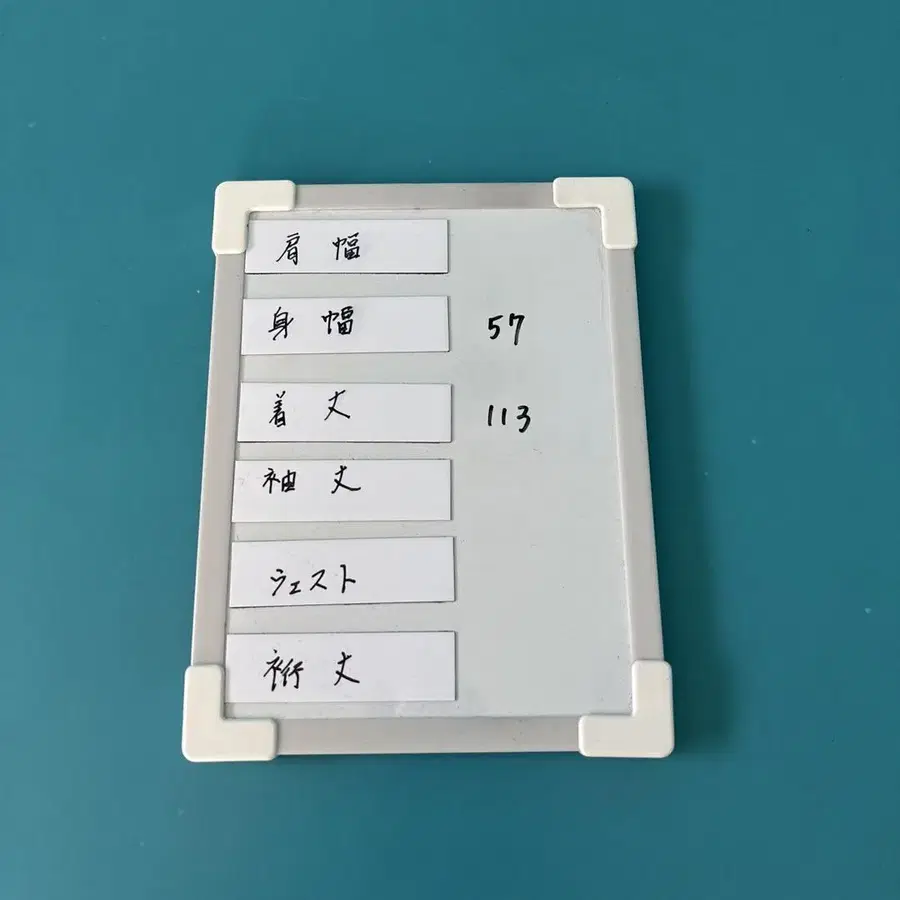 肩幅
身幅 57
着丈 113
袖丈
ウェスト
裄丈